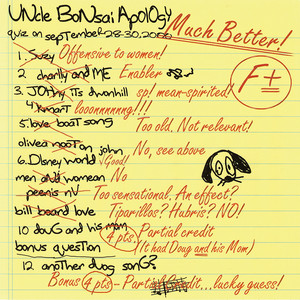 UNcle BoNsai Apology
quiz on september 28-30, 2006
Much Better!
F+
1. Suzy Offensive to women!
2. charlly and ME Enabler
3. JOhny ITs dwnhill sp! mean-spirited!
4 kmart looonnnnnng!!!
5. love boat song Too old. Not relevant!
olivea noot on john No, see above
6. Disney world √Good!
men and women No
peenis nV Too sensational. An effect?
bill board love Tiparillos? Hubris? NO!
10 douG and his mom 4 pts. Partial credit
(It had Doug and his Mom)
bonus question
12 another dug sonG?
Bonus 4 pts - Partial Credit...lucky guess!